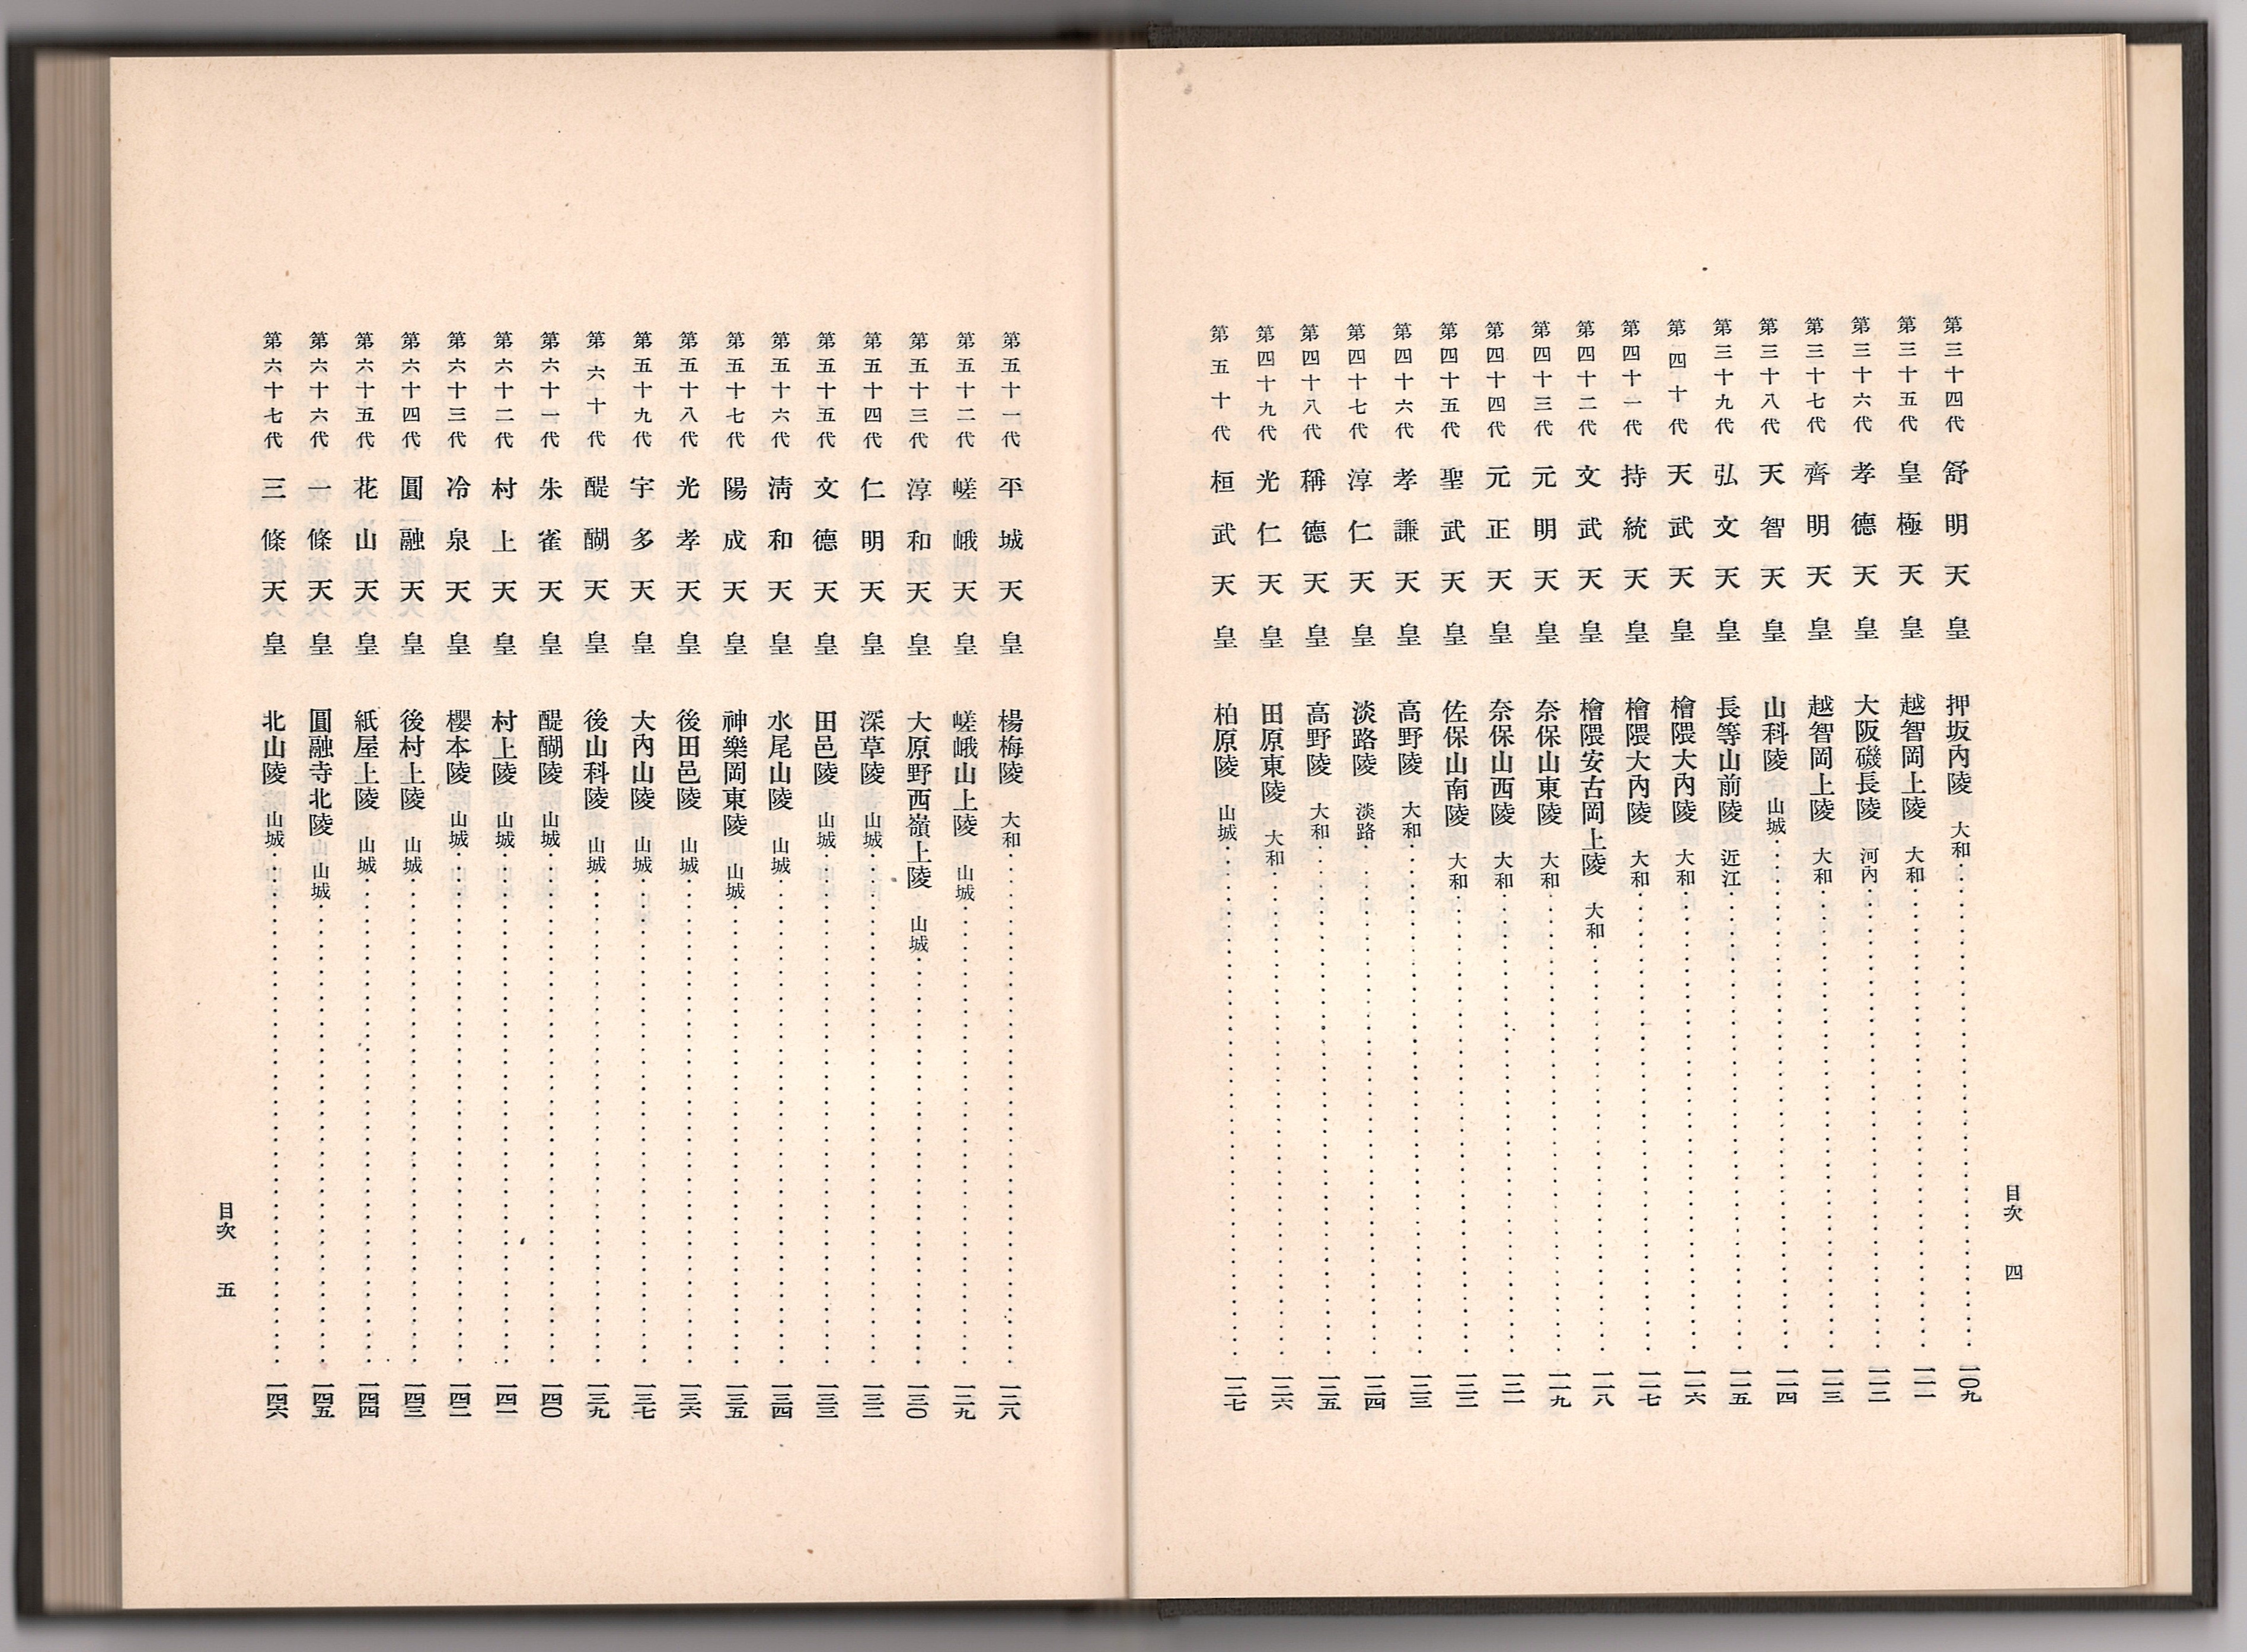 目次 四
第三十四代 舒明天皇 押坂內陵 大和 一〇九
第三十五代 皇極天皇 越智岡上陵 大和 一一一
第三十六代 孝德天皇 大阪磯長陵 河內 一一二
第三十七代 齊明天皇 越智岡上陵 大和 一一三
第三十八代 天智天皇 山科陵 山城 一一四
第三十九代 弘文天皇 長等山前陵 近江 一一五
第四十代 天武天皇 檜隈大內陵 大和 一一六
第四十一代 持統天皇 檜隈大內陵 大和 一一七
第四十二代 文武天皇 檜隈安古岡上陵 大和 一一八
第四十三代 元明天皇 奈保山東陵 大和 一一九
第四十四代 元正天皇 奈保山西陵 大和 一二一
第四十五代 聖武天皇 佐保山南陵 大和 一二二
第四十六代 孝謙天皇 高野陵 大和 一二三
第四十七代 淳仁天皇 淡路陵 淡路 一二四
第四十八代 稱德天皇 高野陵 大和 一二五
第四十九代 光仁天皇 田原東陵 大和 一二六
第五十代 桓武天皇 柏原陵 山城 一二七
第五十一代 平城天皇 楊梅陵 大和 一二八
第五十二代 嵯峨天皇 嵯峨山上陵 山城 一二九
第五十三代 淳和天皇 大原野西嶺上陵 山城 一三〇
第五十四代 仁明天皇 深草陵 山城 一三二
第五十五代 文德天皇 田邑陵 山城 一三三
第五十六代 淸和天皇 水尾山陵 山城 一三四
第五十七代 陽成天皇 神樂岡東陵 山城 一三五
第五十八代 光孝天皇 後田邑陵 山城 一三六
第五十九代 宇多天皇 大內山陵 山城 一三七
第六十代 醍醐天皇 後山科陵 山城 一三九
第六十一代 朱雀天皇 醍醐陵 山城 一四〇
第六十二代 村上天皇 村上陵 山城 一四一
第六十三代 冷泉天皇 櫻本陵 山城 一四二
第六十四代 圓融天皇 後村上陵 山城 一四三
第六十五代 花山天皇 紙屋上陵 山城 一四四
第六十六代 一條天皇 圓融寺北陵 山城 一四五
第六十七代 三條天皇 北山陵 山城 一四六
目次 五